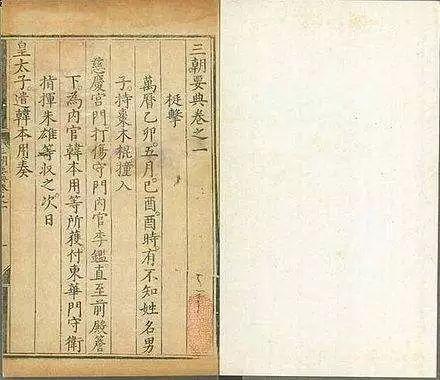 三朝要典卷之一
梃擊
萬曆乙卯。五月己酉。酉時。有不知姓名男
子。持棗木棍。撞入
慈慶宮門。打傷守門內官李鑑。直至前殿簷
下。為內官韓本用等所獲。付東華門守衛
指揮朱雄等収之。次日
皇太子遣韓本用奏